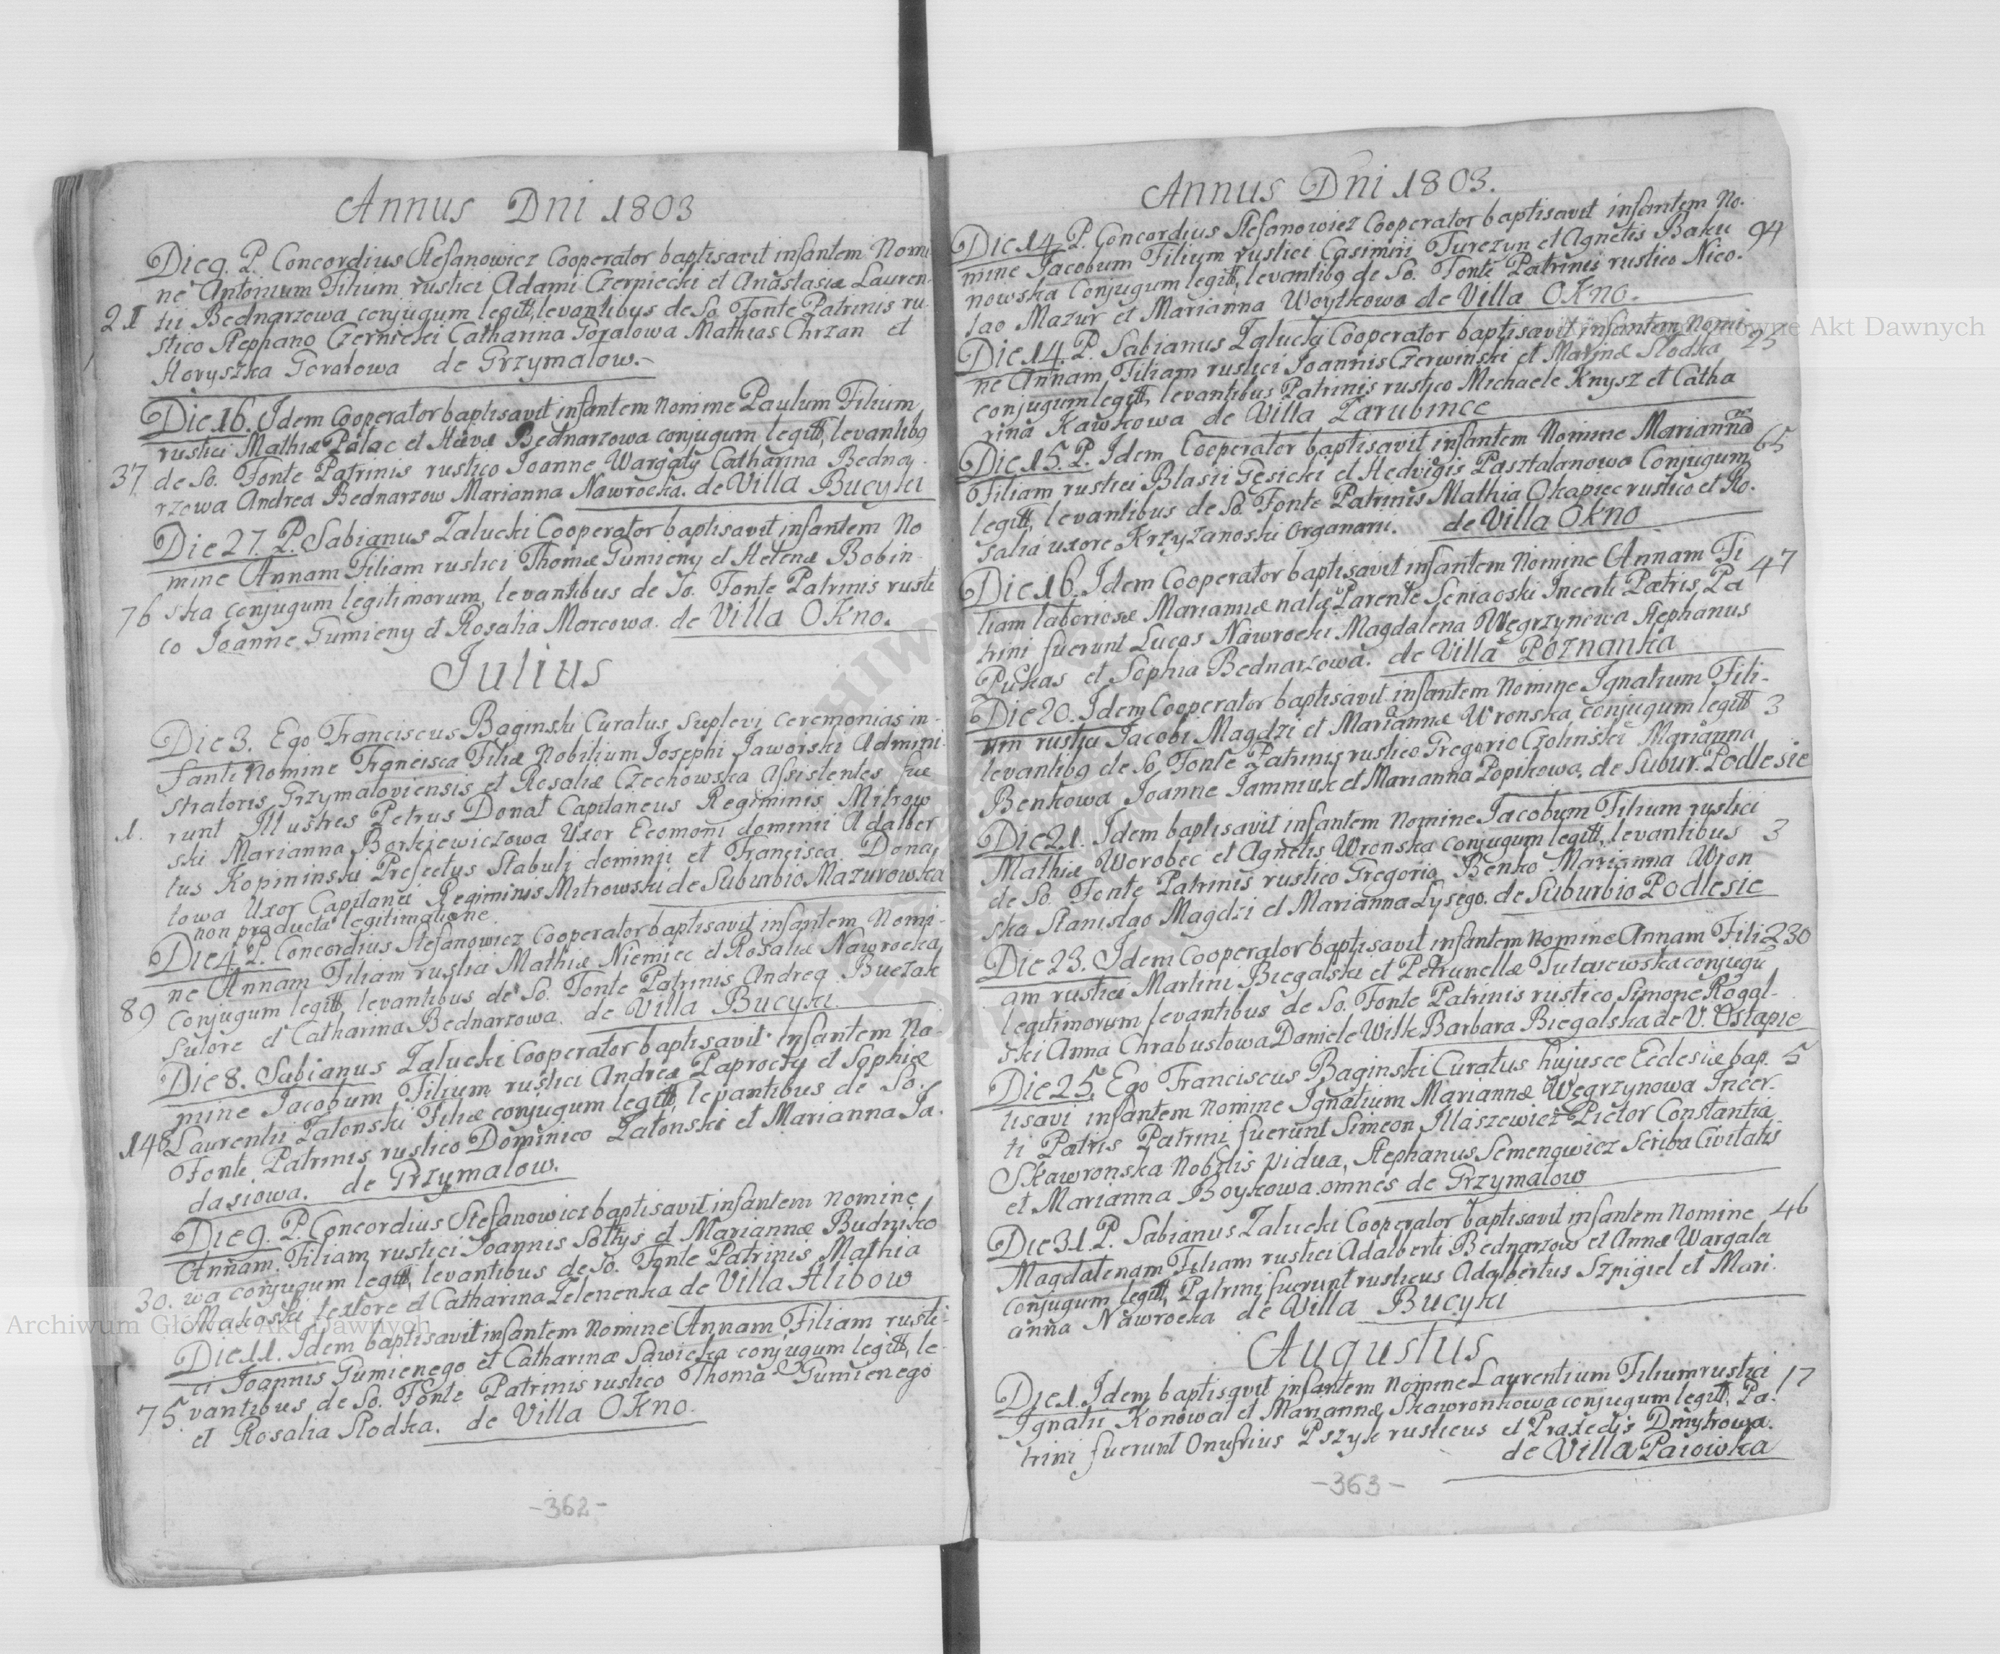 Annus Dni 1803
Die 9. P. Concordius Stefanowicz Cooperator baptisavit infantem Nomi
ne Antonium Filium rustici Adami Czerniecki et Anastasiæ Lauren
21 tii Bednarzowa conjugum legitt, levantibus de So. Fonte Patrinis ru
stico Stephano Czerniecki Catharina Goralowa Mathias Chrzan et
Horyszka Goralowa de Grzymalow.
Die 16. Idem Cooperator baptisavit infantem Nomine Paulum Filium
rustici Mathiæ Palac et Hævæ Bednarzowa conjugum legitt, levantib9
37 de So. Fonte Patrinis rustico Joanne Wargaly Catharina Bedna
rzowa Andrea Bednarzow Marianna Nawrocka. de Villa Bucyki
Die 27. P. Sabianus Zalucki Cooperator baptisavit infantem No
mine Annam Filiam rustici Thomæ Gumieny et Helenæ Bobin
76 ska conjugum legitimorum, levantibus de So. Fonte Patrinis rusti
co Joanne Gumieny et Rosalia Marcowa. de Villa Okno.
Julius
Die 3. Ego Franciscus Baginski Curatus suplevi ceremonias in
fanti Nomine Francisca Filiæ Nobilium Josephi Jaworski Admini
stratoris Grzymaloviensis et Rosaliæ Czechowska Assistentes fue
1. runt Illustres Petrus Donat Capitaneus Regiminis Mitrow
ski Marianna Borkiewiczowa Uxor Economi dominii Adalber
tus Kopininski Prefectus Stabuli dominii et Francisca Dona
towa Uxor Capitanei Regiminis Mitrowski de Suburbio Mazurowska
non producta legitimatione.
Die 4. P. Concordius Stefanowicz Cooperator baptisavit infantem Nomi
ne Annam Filiam rustici Mathiæ Niemiec et Rosaliæ Nawrocka
89 Conjugum legitt levantibus de So. Fonte Patrinis Andrea Buczak
Sutore et Catharina Bednarzowa. de Villa Bucyki.
Die 8. Sabianus Zalucki Cooperator baptisavit infantem No
mine Jacobum Filium rustici Andreæ Paprocky et Sophiæ
148 Laurentii Zatonski Filiæ conjugum legitt, levantibus de So.
Fonte Patrinis rustico Dominico Zatonski et Marianna Ja
dasiowa. de Grzymalow.
Die 9. P. Concordius Stefanowicz baptisavit infantem nomine
Annam Filiam rustici Joannis Soltys et Mariannæ Budniko
30. wa conjugum legitt, levantibus de So. Fonte Patrinis Mathia
Makoski textore et Catharina Zelenenka de Villa Hlibow
Die 11. Idem baptisavit infantem Nomine Annam Filiam rusti
ci Joannis Gumienego et Catharinæ Sawicka conjugum legitt, le
75 vantibus de So. Fonte Patrinis rustico Thoma Gumienego
et Rosalia Slodka. de Villa Okno.
-362-
Annus Dni 1803.
Die 14. P. Concordius Stefanowicz Cooperator baptisavit infantem No.
mine Jacobum Filium rustici Casimiri Turczyn et Agnetis Baku 94
nowska Conjugum legitt, levantib9 de So. Fonte Patrinis rustico Nico.
lao Mazur et Marianna Woytkowa de Villa Okno.
Die 14. P. Sabianus Zalucki Cooperator baptisavit infantem Nomi
ne Annam Filiam rustici Joannis Czerwinski et Marinæ Slodka 25
conjugum legitt, levantibus Patrinis rustico Michaele Knysz et Catha
rina Kawkowa de Villa Zarubince
Die 15. P. Idem Cooperator baptisavit infantem Nomine Mariannā 65
Filiam rustici Blasii Gesicki et Hedvigis Pasztalanowa Conjugum
legitt, levantibus de So Fonte Patrinis Mathia Okapiec rustico et Ro.
salia uxore Krzyzanoski Organarii. de Villa Okno
Die 16. Idem Cooperator baptisavit infantem Nomine Annam Fi 47
liam laboriosæ Mariannæ natæ Parente Seniaoski Incerti Patris, Pa
trini fuerunt Lucas Nawrocki Magdalena Węgrzynowa Stephanus
Pukas et Sophia Bednarzowa. de Villa Poznanka
Die 20. Idem Cooperator baptisavit infantem Nomine Ignatium Fili-
um rustici Jacobi Magdzi et Mariannæ Wronska conjugum legitt 3
levantib9 de So. Fonte Patrinis rustico Gregorio Czolinski Marianna
Benkowa Joanne Jamniuk et Marianna Popikowa. de Subur. Podlesie
Die 21. Idem baptisavit infantem Nomine Jacobum Filium rustici
Mathiæ Worobec et Agnetis Wronska conjugum legitt, levantibus 3
de So. Fonte Patrinis rustico Gregorio Benko Marianna Wron
ska Stanislao Magdzi et Marianna Lysego. de Suburbio Podlesie
Die 23. Idem Cooperator baptisavit infantem Nomine Annam Fili 230
am rustici Martini Biegalski et Petrunellæ Tutaiewska conjugu
legitimorum levantibus de So. Fonte Patrinis rustico Simone Rogal-
ski Anna Chrabustowa Daniele Wilk Barbara Biegalska de V. Ostapie
Die 25. Ego Franciscus Baginski Curatus hujusce Ecclesiæ bap. 5
tisavi infantem Nomine Ignatium Mariannæ Węgrzynowa Incer.
ti Patris Patrini fuerunt Simeon Illaszewicz Pictor Constantia
Skawronska Nobilis vidua, Stephanus Semenowicz Scriba Civitatis
et Marianna Boykowa omnes de Grzymalow
Die 31. P. Sabianus Zalucki Cooperator baptisavit infantem Nomine 46
Magdalenam Filiam rustici Adalberti Bednarzow et Annæ Wargala
conjugum legitt, Patrini fuerunt rusticus Adalbertus Szpigiel et Mari.
anna Nawrocka de Villa Bucyki
Augustus
Die 1. Idem baptisavit infantem Nomine Laurentium Filium rustici 17
Ignatii Konowal et Mariannæ Skawronkowa conjugum legitt, Pa
trini fuerunt Onufrius Pszyk rusticus et Praxedis Dmytrowa.
de Villa Paiowka
-363-
Archiwum Główne Akt Dawnych